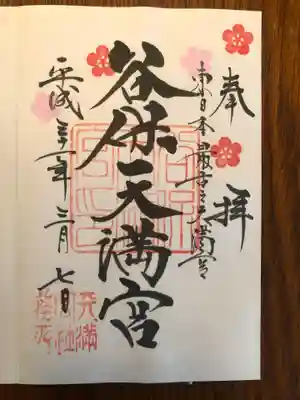 奉拝
東日本最古之天満宮
谷保天満宮
平成三十一年三月七日